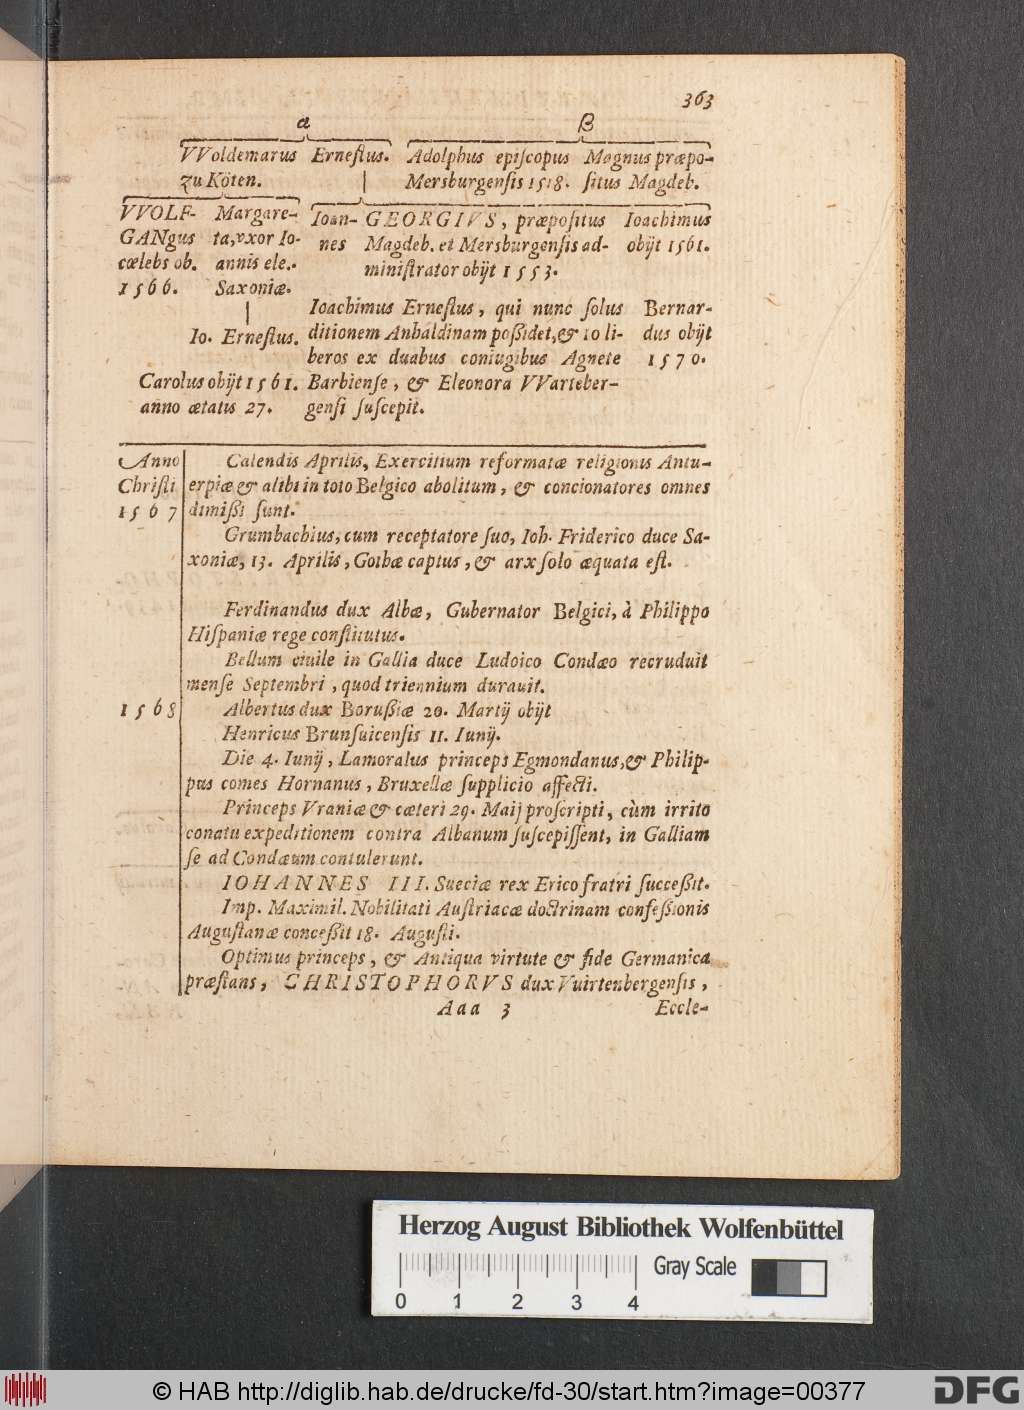 363
a β
VVoldemarus Ernestus. Adolphus episcopus Magnus præpo-
zu Köten. Mersburgensis 1518. situs Magdeb.
VVOLF- Margare- Ioan- GEORGIVS, præpositus Ioachimus
GANgus ta, vxor Io- nes Magdeb. et Mersburgensis ad- obijt 1561.
cœlebs ob. annis ele. ministrator obijt 1553.
1566. Saxoniæ.
Ioachimus Ernestus, qui nunc solus Bernar-
Io. Ernestus. ditionem Anhaldinam possidet, & 10 li- dus obijt
beros ex duabus coniugibus Agnete 1570.
Carolus obijt 1561. Barbiense, & Eleonora VVarteber-
anno ætatis 27. gensi suscepit.
Anno Calendis Aprilis, Exercitium reformatæ religionis Antu-
Christi erpiæ & alibi in toto Belgico abolitum, & concionatores omnes
1567 dimissi sunt.
Grumbachius, cum receptatore suo, Ioh. Friderico duce Sa-
xoniæ, 13. Aprilis, Gothæ captus, & arx solo æquata est.
Ferdinandus dux Albæ, Gubernator Belgici, à Philippo
Hispaniæ rege constitutus.
Bellum ciuile in Gallia duce Ludoico Condæo recruduit
mense Septembri, quod triennium durauit.
1568 Albertus dux Borussiæ 20. Martij obijt
Henricus Brunsuicensis 11. Iunij.
Die 4. Iunij, Lamoralus princeps Egmondanus, & Philip-
pus comes Hornanus, Bruxellæ supplicio affecti.
Princeps Vraniæ & cæteri 29. Maij proscripti, cùm irrito
conatu expeditionem contra Albanum suscepissent, in Galliam
se ad Condæum contulerunt.
IOHANNES III. Sueciæ rex Erico fratri successit.
Imp. Maximil. Nobilitati Austriacæ doctrinam confessionis
Augustanæ concessit 18. Augusti.
Optimus princeps, & Antiqua virtute & fide Germanica
præstans, CHRISTOPHORVS dux Vuirtenbergensis,
Aaa 3 Eccle-
Herzog August Bibliothek Wolfenbüttel
Gray Scale
0 1 2 3 4
© HAB http://diglib.hab.de/drucke/fd-30/start.htm?image=00377
DFG